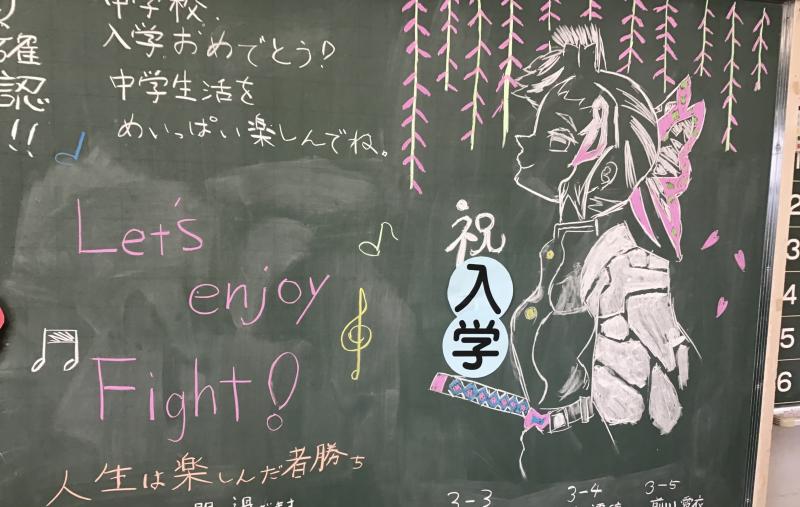 確
認
!!
中学校、
入学おめでとう!
中学生活を
めいっぱい楽しんでね。
Let's
enjoy
Fight!
人生は楽しんだ者勝ち
祝
入
学
3-3
3-4
3-5
2
3
4
5
6